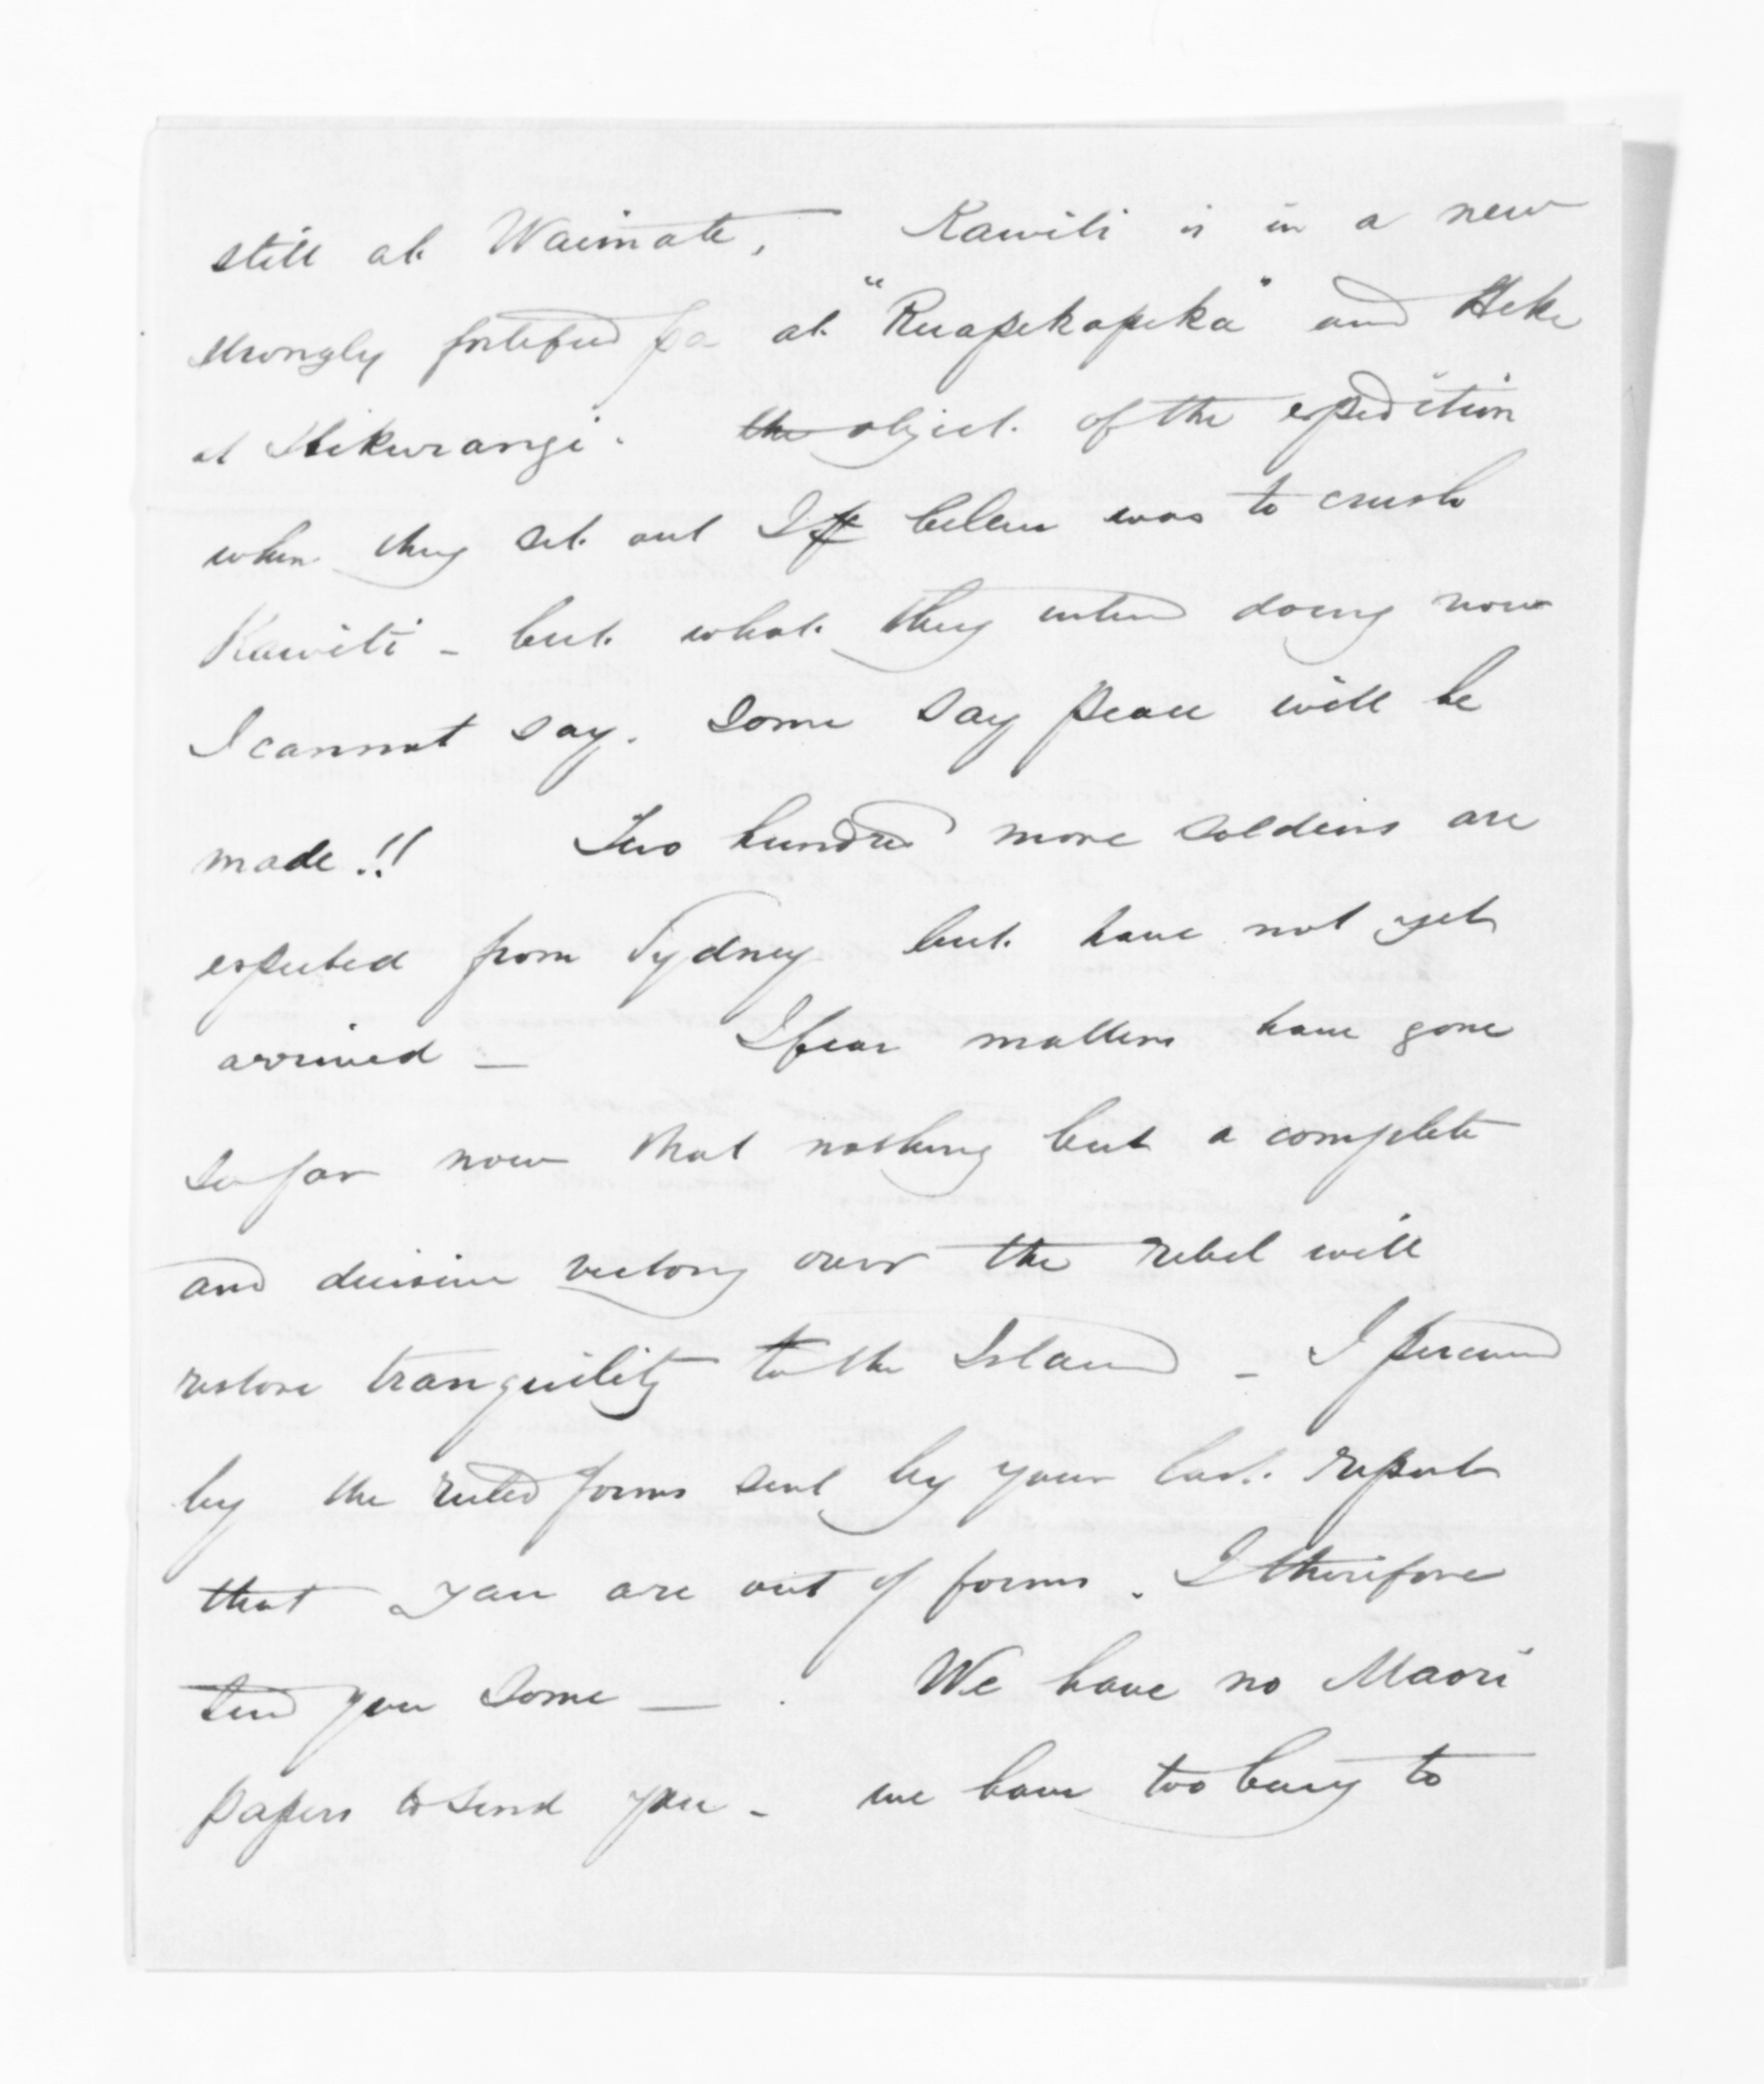 still at Waimate, Kawiti is in a new
strongly fortified pa at "Ruapekapeka" and Heke
at Hikurangi. the object of the expedition
when they set out I believe was to crush
Kawiti - but what they intend doing now
I cannot say. Some say peace will be
made!! Two hundred more soldiers are
expected from Sydney but have not yet
arrived — I fear matters have gone
so far now that nothing but a complete
and decisive victory over the rebel will
restore tranquility to the Island - I perceive
by the ruled forms sent by your last report
that you are out of forms. I therefore
send you some — . We have no Maori
papers to send you - we have too busy to